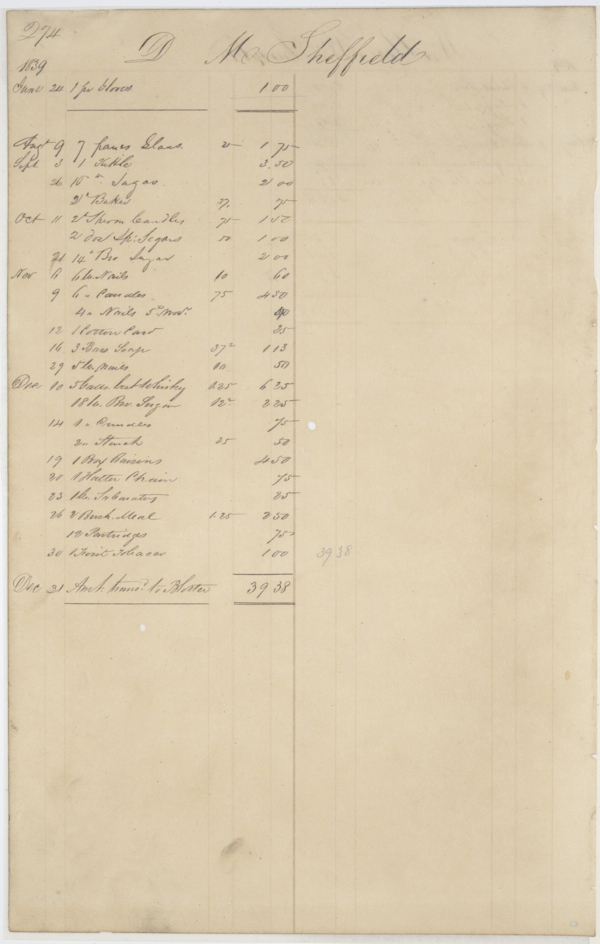 274
D M Sheffield
1839
June 24 1 pr Gloves 1 00
Augt 9 7 panes Glass 25 1 75
Sept 3 1 Kettle 3.50
26 Sugar 2 00
75
Oct 11 2 " Sperm Candles 75 1 50
2 doz Sp: Segars 50 1 00
21 14 " Bro Sugar 2 00
Nov 6 6 lb Nails 10 60
9 6 " Candles 75 4 50
4 " Nails 40
12 1 Cotton Card 25
16 3 Bars Soap 37½ 1 13
29 5 lb Nails 10 50
Dec 10 5 Galls best Whisky 1.25 6 25
18 lb. Bro. Sugar 12½ 2 25
14 1 " Candles 75
2 " Starch 25 50
19 1 Box Raisins 4 50
20 1 Halter Chain 75
23 1 lb. Salaratus 25
26 2 Bush. Meal 1.25 2 50
12 Partridges 75
30 1 00
39 38
Dec 31 Amt. trans.d to Blotter 39 38